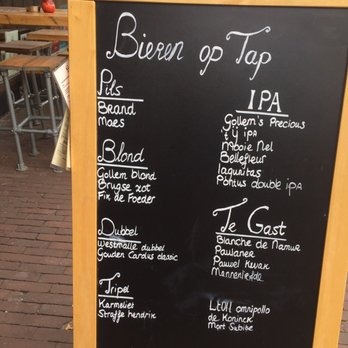 Bieren op Tap
Pils
Brand
Moes
Blond
Gollem blond
Brugse zot
Fix de Foeder
Dubbel
Westmalle dubbel
Gouden Carolus classic
Tripel
Karmeliet
Straffe hendrik
IPA
Gollem's Precious
't ij ipa
Mooie Nel
Bellefleur
lagunitas
Pontus double iPA
Te Gast
Blanche de Namur
Paulaner
Pauwel Kwak
omnipollo
de Koninck
Mort Subite